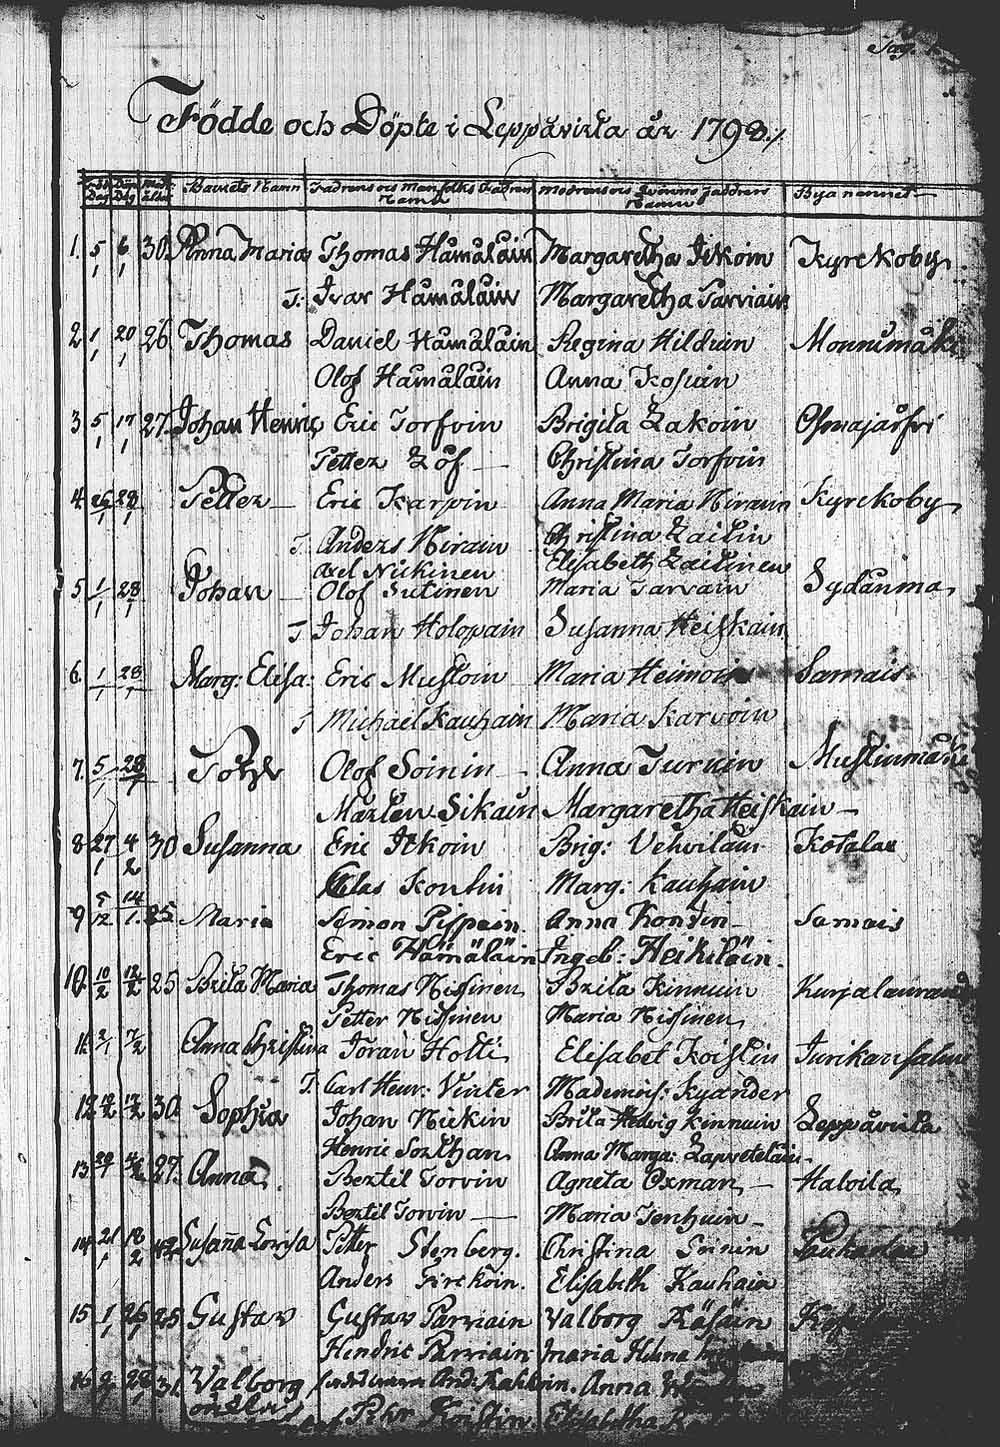 Födde och Döpte i Leppävirta år 1798./
Barnets Namn Fädrens ois Manfolks Fadrars Namn Mödrens ois Qvinns faddrars Namn Byanamnet
1. 5/1 6/1 30 Anna Maria Thomas Hämäläin Margaretha Itkoin Kyrckoby
T: Ivar Hämäläin Margaretha Parviain
2 1/1 20/1 26 Thomas Daniel Hämäläin Regina Hilduin Monnimäki
Olof Hämäläin Anna Kosuin
3 5/1 17/1 27 Johan Henric Eric Torfvin Brigita Lakoin Osmajärfvi
Petter Löf Christina Torfvin
4 26/1 28/1 Petter Eric Karpin Anna Maria Nirain Kyrckoby
T. Anders Nirain Christina Laitin
Axel Nickinen Elisabeth Laitinen
5 1/1 28/1 Johan Olof Sutinen Maria Tarvain Sydänma
T Johan Holopain Susanna Heiskain
6 1/1 28/1 Marg: Elisa: Eric Mustoin Maria Heimoin Samais
T Michael Kauhain Maria Karvoin
7. 5/1 28/1 Olof Soinin Anna Turuin Mustinmäki
Mårten Sikain Margaretha Heiskain
8 27/1 4/2 30 Susanna Eric Itkoin Brig: Vehviläin Kotalax
Clas Kontin Marg: Kauhain
9 5/12 14/1. 25 Maria Simon Pippoin. Anna Kontin Samais
Eric Hämäläin Ingeb: Heikiläin.
10. 10/2 12/2 25 Brita Maria Thomas Nissinen Brita Kinnuin Kurjalanranda
Petter Nissinen Maria Nissinen
11. 2/1 7/2 Anna Christina Jöran Holti Elisabet Koistin Turikansalmi
T. Carl Henr: Vinter Mademois: Kyander
12 30 Sophia Johan Nickin Brita Hedvig Kinnuin Leppävirta
Henric Sorthan Anna Marga: Lapveteläin
13 27. Anna. Bertil Torvin Agneta Oxman Haloila
Bertil Torvin Maria Tenhuin
14 21/1 18/2 42 Susaña Lovisa Petter Stenberg. Christina Soinin Paukarlax
Anders Kirckoin. Elisabeth Kauhain
15 1/1 26/1 25 Gustav Gustav Parviain Valborg Räsäin
Hendric Parviain Maria Helena
16 31. Valborg And: Kahkoin. Anna
oächta Pehr Koistin. Elisabetha